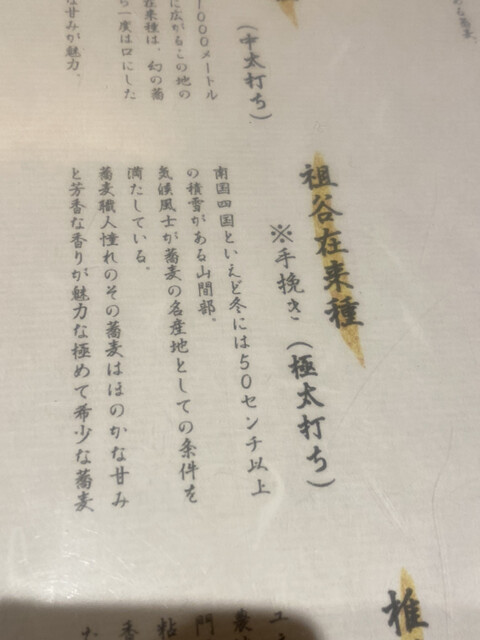 める蕎麦。
(中太打ち)
1000メートル
に広がるこの地の
在来種は、幻の蕎
ら一度は口にした
な甘みが魅力。
祖谷在来種
※手挽き(極太打ち)
南国四国といえど冬には50センチ以上
の積雪がある山間部。
気候風土が蕎麦の名産地としての条件を
満たしている。
蕎麦職人憧れのその蕎麦はほのかな甘み
と芳香な香りが魅力な極めて希少な蕎麦
椎
門
粘
香